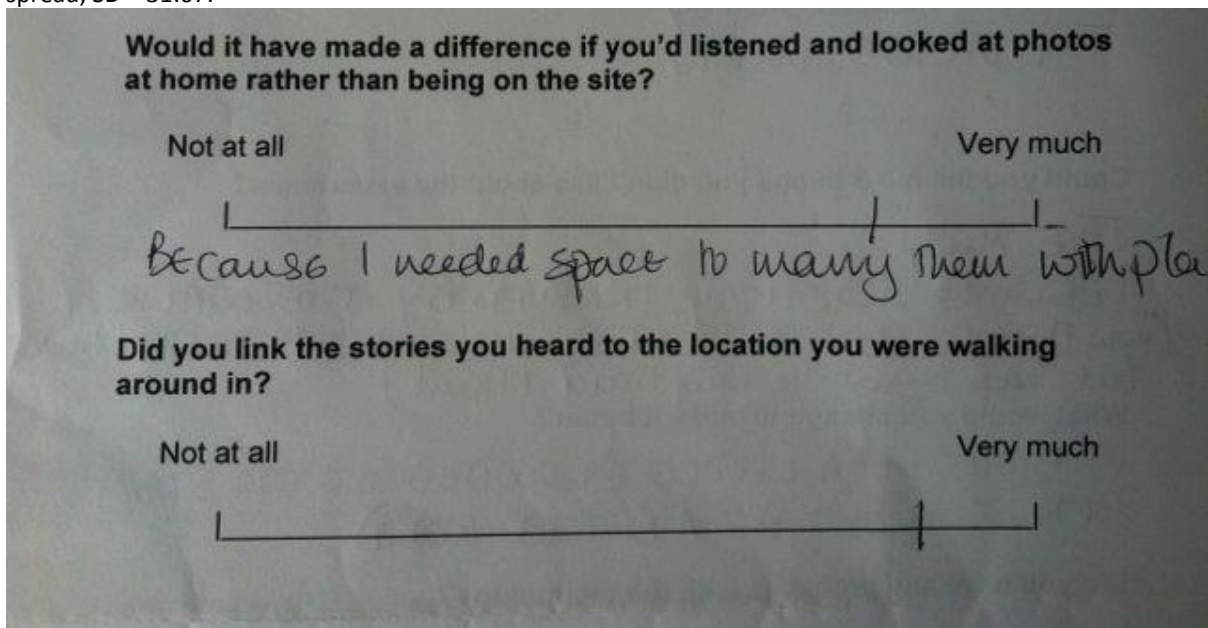 Would it have made a difference if you'd listened and looked at photos
at home rather than being on the site?
Not at all Very much
Because I needed space to marry them with pla
Did you link the stories you heard to the location you were walking
around in?
Not at all Very much